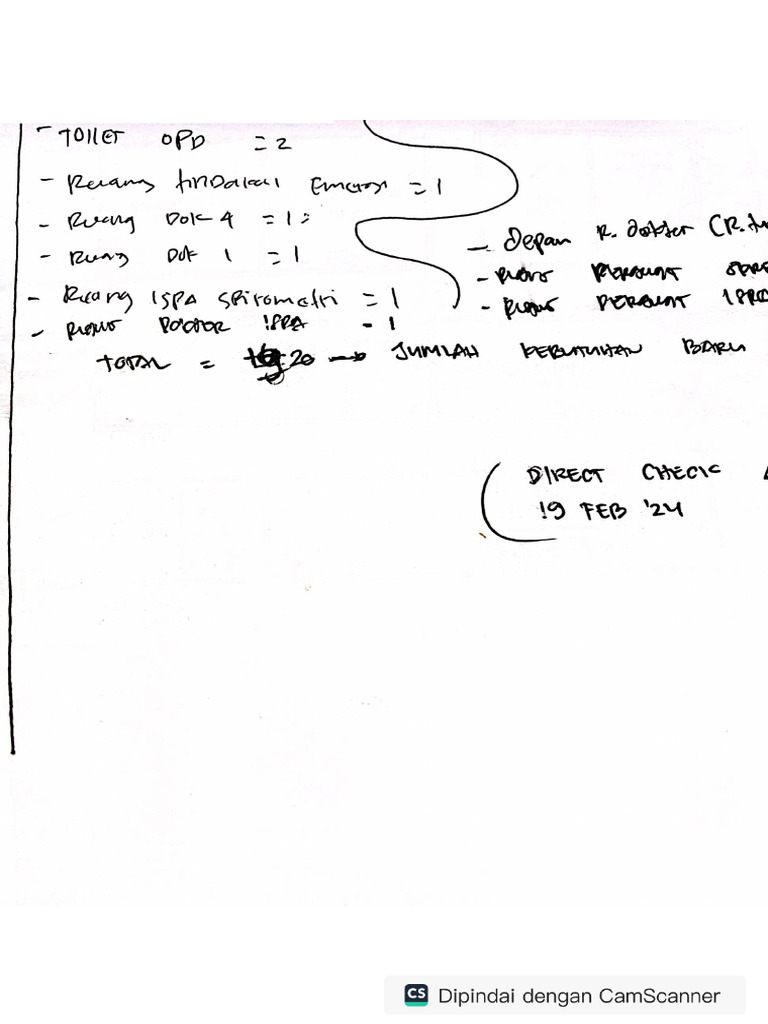 - TOILET OPD = 2
- Ruang tindakan Emergi = 1
- Ruang Dok 4 = 1
- Ruang Dok 1 = 1
- Ruang ISPA Spirometri = 1
- Ruang Dokter ISPA - 1
TOTAL = 20 → JUMLAH KEBUTUHAN BARU
- Depan R. dokter (R.
- Ruang PERAWAT
- Ruang PERAWAT
DIRECT CHECK
19 FEB '24
CS Dipindai dengan CamScanner